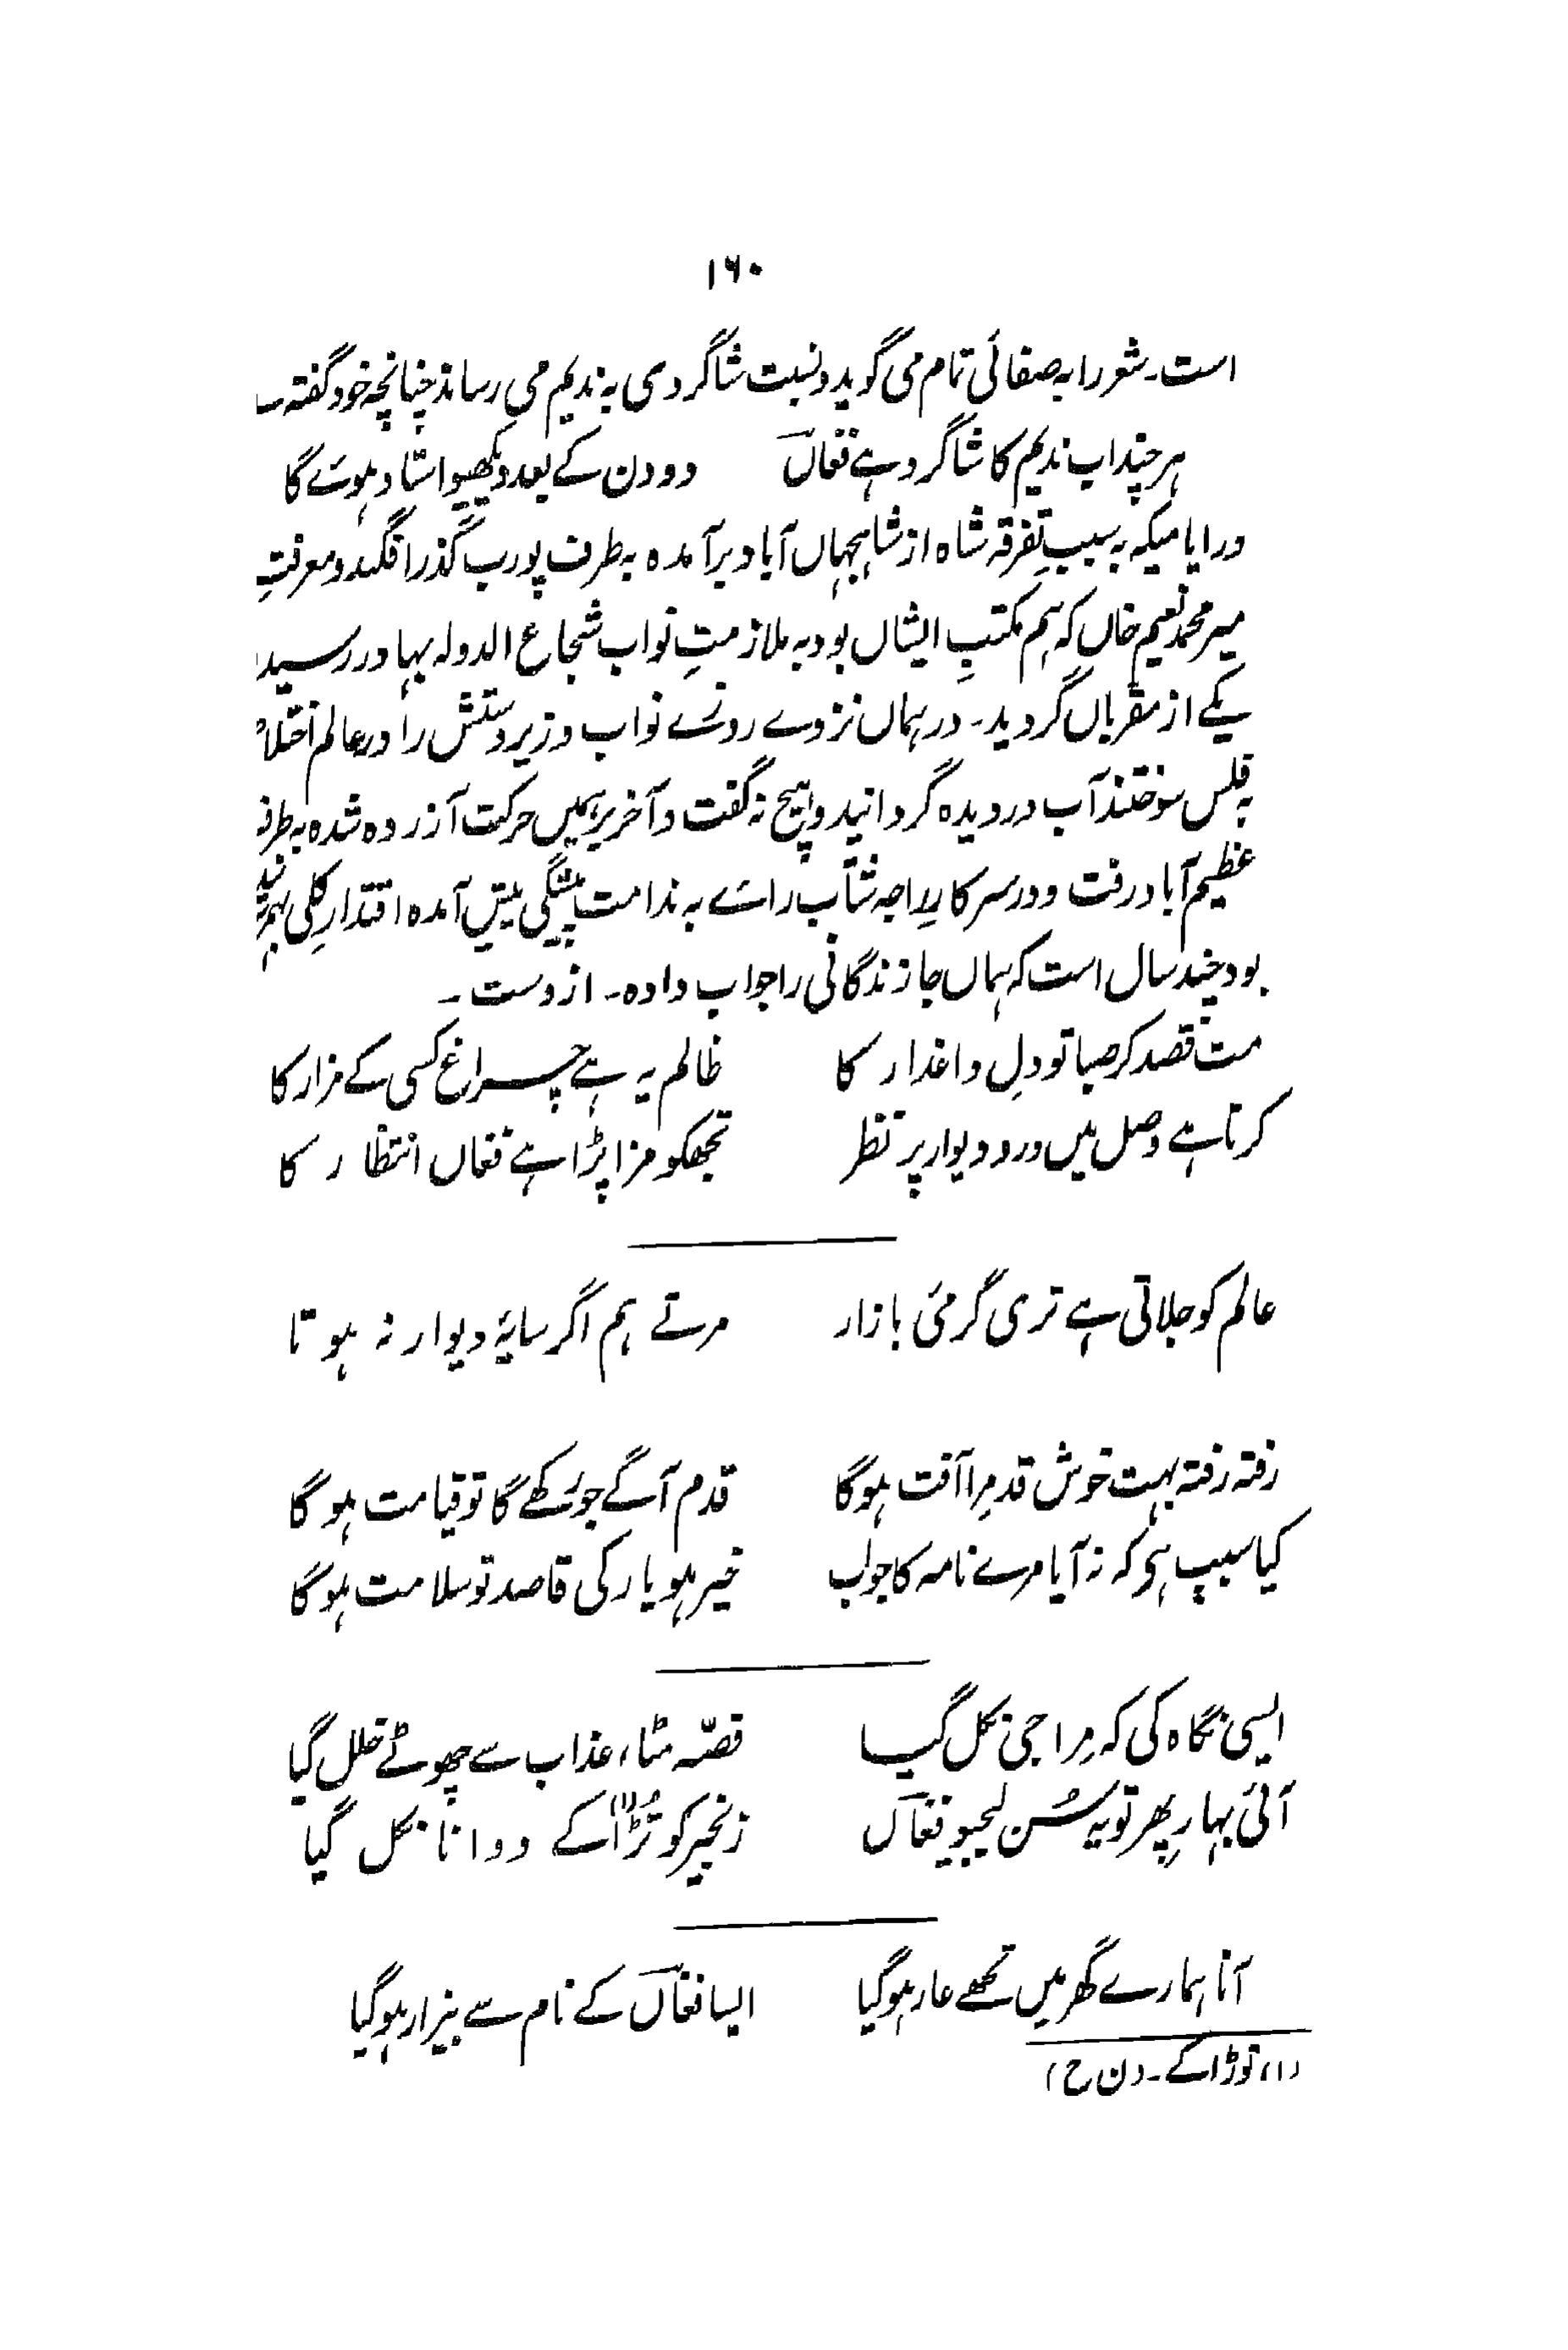 ۱۶۰
است۔ شعر را بہ صفائی تمام می گوید و نسبت شاگردی بہ ندیم می رساند چنانچہ خود گفتہ ؎
ہر چند اب ندیم کا شاگرد ہے فغاںؔ دو دن کے بعد دیکھیو استاد ہوئے گا
در ایامیکہ بہ سببِ تفرقہ شاہ از شاہجہاں آباد برآمدہ بہ طرف پورب گذر افگند و معرفتِ
میر محمد نعیم خاں کہ ہم مکتبِ ایشاں بود بہ ملازمتِ نواب شجاع الدولہ بہادر رسید
یکے از مقرباں گردید۔ در ہماں نزدے روزے نواب وزیر دستش را در عالم اختلا
بہ فلس سوختند آب در دیدہ گردانید و ہیچ نہ گفت و آخر بریمیں حرکت آزردہ شدہ بہ طرف
عظیم آباد رفت و در سرکارِ راجہ شتاب رائے بہ ندامت پیشگی پیش آمدہ اقتدارِ کلی بہم
بود چند سال است کہ ہماں جا زندگانی را جواب دادہ۔ از وست ۔
مت قصد کر صبا تو دلِ داغدار کا ظالم یہ ہے چراغ کسی کے مزار کا
کرتا ہے وصل میں در و دیوار پر نظر تجھکو مزا پڑا ہے فغاں انتظار کا
عالم کو جلاتی ہے تری گرمئ بازار مرتے ہم اگر سایۂ دیوار نہ ہوتا
رفتہ رفتہ بہت خوش قد مِرا آفت ہوگا قدم آگے جو رکھے گا تو قیامت ہوگا
کیا سبب ہی کہ نہ آیا مرے نامہ کا جواب خیر ہو یار کی قاصد تو سلامت ہوگا
ایسی نگاہ کی کہ مِرا جی نکل گیا قصّہ مٹا، عذاب سے چھوٹے خلل گیا
آئی بہار پھر تو یہ سُن لیجیو فغاںؔ زنجیر کو تُڑا(۱) کے دوانا نکل گیا
آنا ہمارے گھر میں تجھے عار ہوگیا ایسا فغاںؔ کے نام سے بیزار ہوگیا
(۱) توڑا کے۔ (ن ح)